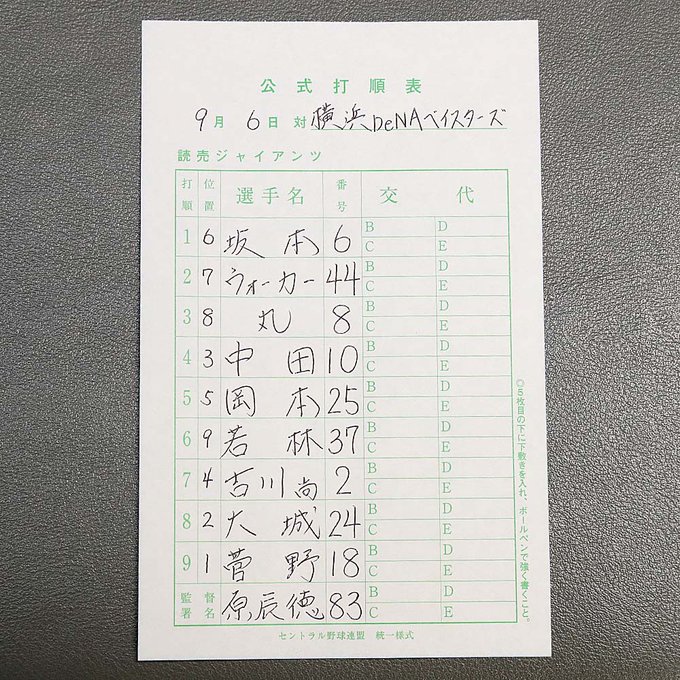 公式打順表
9月 6日 対 横浜DeNAベイスターズ
読売ジャイアンツ
打順 位置 選手名 番号 交代
1 6 坂本 6 B D
C E
2 7 ウォーカー 44 B D
C E
3 8 丸 8 B D
C E
4 3 中田 10 B D
C E
5 5 岡本 25 B D
C E
6 9 若林 37 B D
C E
7 4 吉川尚 2 B D
C E
8 2 大城 24 B D
C E
9 1 菅野 18 B D
C E
監督署名 原辰徳 83 B D
C E
セントラル野球連盟 統一様式
◎5枚目の下に下敷きを入れ、ボールペンで強く書くこと。